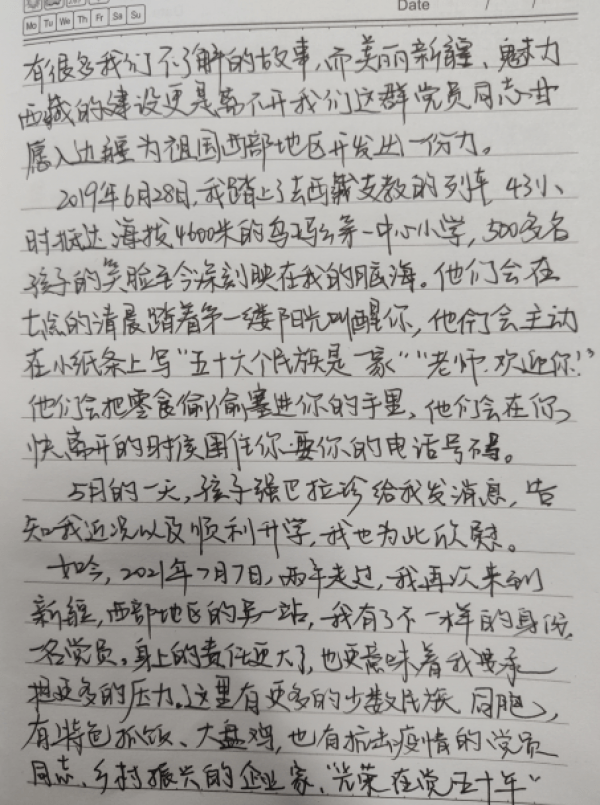 Mo Tu We Th Fr Sa Su
Date / /
有很多我们不了解的故事,而美丽新疆、魅力
西藏的建设更是离不开我们这群党员同志甘
愿入边疆为祖国西部地区开发出一份力。
2019年6月28日,我踏上了去西藏支教的列车,43小
时抵达海拔4600米的乌玛乡第一中心小学,500多名
孩子的笑脸至今深刻映在我的脑海。他们会在
七点的清晨踏着第一缕阳光叫醒你,他们会主动
在小纸条上写"五十六个民族是一家""老师.欢迎你!"
他们会把零食偷偷塞进你的手里,他们会在你
快离开的时候围住你要你的电话号码。
5月的一天,孩子强巴拉珍给我发消息,告
知我近况以及顺利升学,我也为此欣慰。
如今,2021年7月7日,两年走过,我再次来到
新疆,西部地区的另一站,我有了不一样的身份,
一名党员。身上的责任更大了,也更意味着我要承
担更多的压力。这里有更多的少数民族同胞,
有特色抓饭、大盘鸡,也有抗击疫情的党员
同志、乡村振兴的企业家、"光荣在党五十年"